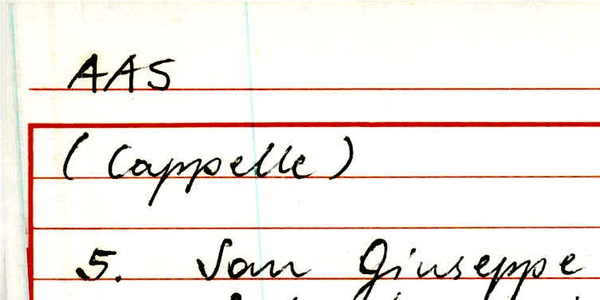 AAS
(Cappelle)
5. San Giuseppe